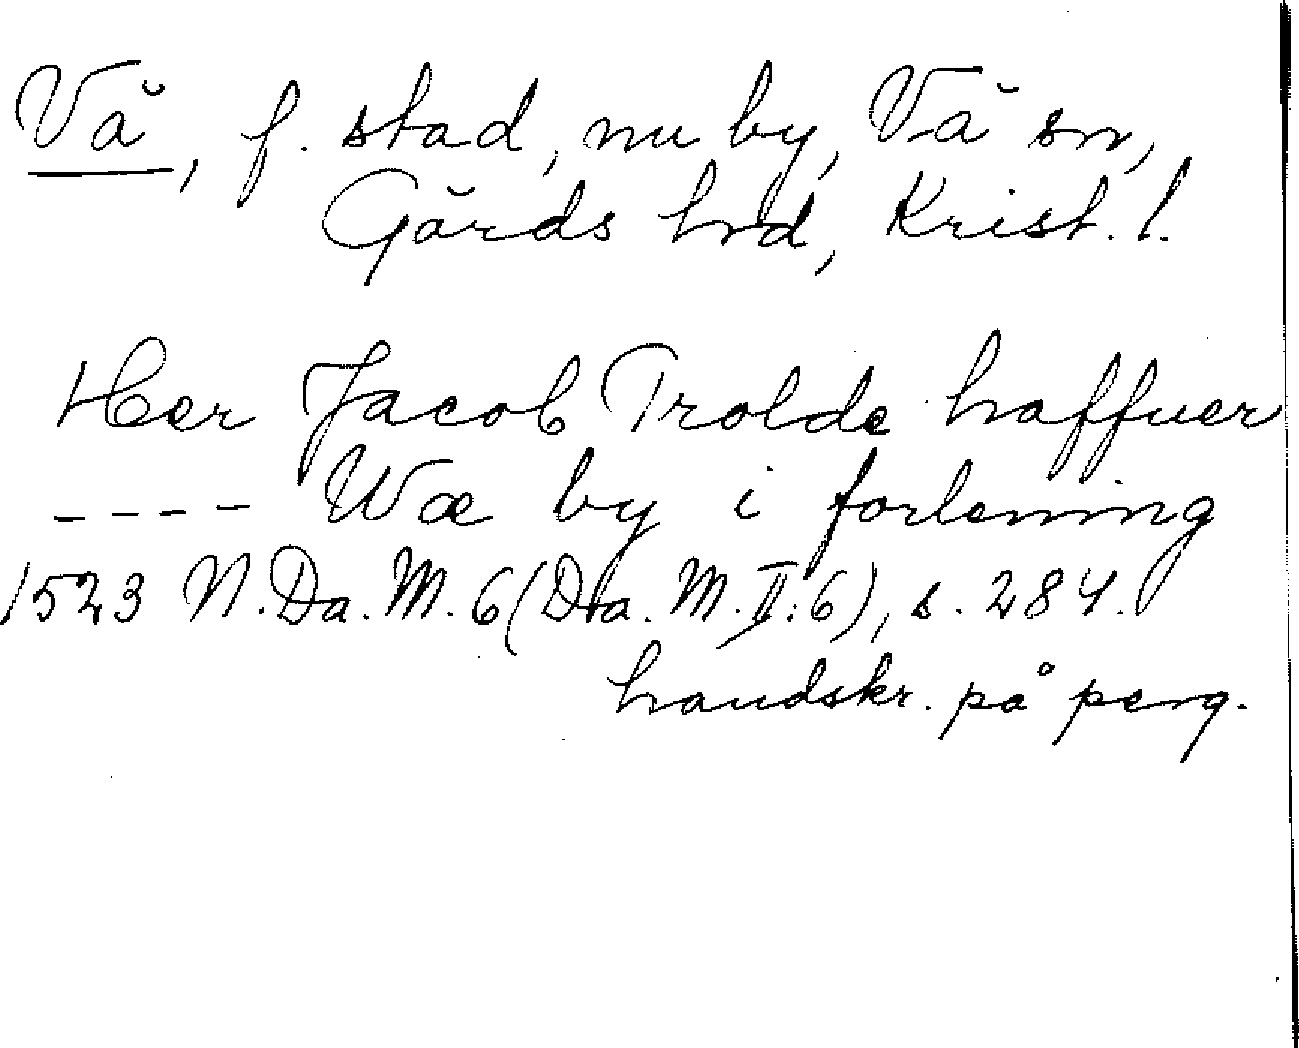 Vå, f. stad, nu by, Vå sn,
Gärds hrd, Krist. l.
Her Jacob Trolde haffuer
---- Wæ by i forlening
1523 N. Da. M. 6 (Da. M. II: 6), s. 284.
handskr. på perg.